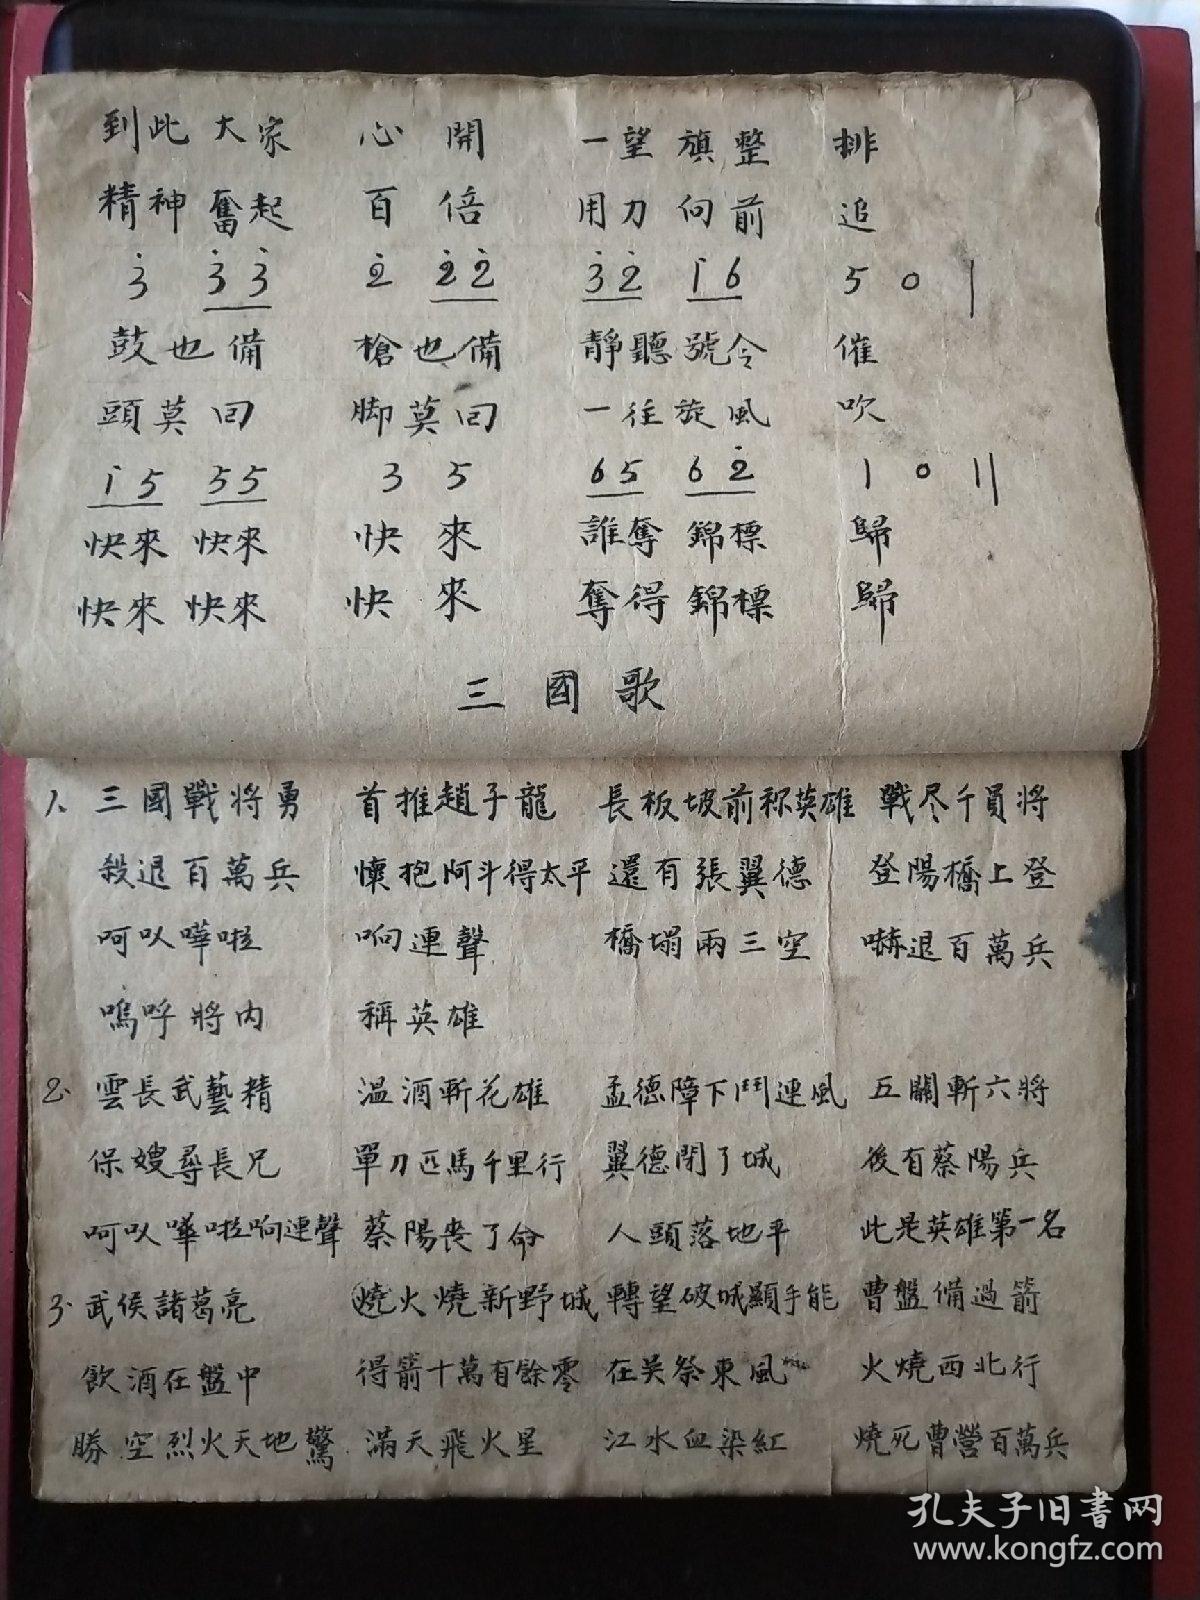 到此 大家 心 開 一望 旗整 排
精神 奮起 百 倍 用刀 向前 追
3 3 3 2 2 2 3 2 1 6 5 0 |
鼓也備 槍也備 靜聽號令 催
頭莫回 脚莫回 一往旋風 吹
1 5 5 5 3 5 6 5 6 2 1 0 ||
快來 快來 快 來 誰奪 錦標 歸
快來 快來 快 來 奪得 錦標 歸
三國歌
1、三國戰將勇 首推趙子龍 長板坡前称英雄 戰尽千員將
殺退百萬兵 懷抱阿斗得太平 還有張翼德 登陽橋上登
呵以嘩啦 响連聲 橋塌兩三空 嚇退百萬兵
嗚呼將內 稱英雄
2. 雲長武藝精 温酒斬花雄 孟德障下鬥連風 五關斬六將
保嫂尋長兄 單刀匹馬千里行 翼德閉了城 後有蔡陽兵
呵以嘩啦响連聲 蔡陽喪了命 人頭落地平 此是英雄第一名
3. 武侯諸葛亮 燒火燒新野城 轉望破城顯手能 曹盤備過箭
飲酒在盤中 得箭十萬有餘零 在吴祭東風 火燒西北行
勝空烈火天地驚 滿天飛火星 江水血染紅 燒死曹營百萬兵
孔夫子旧书网
www.kongfz.com